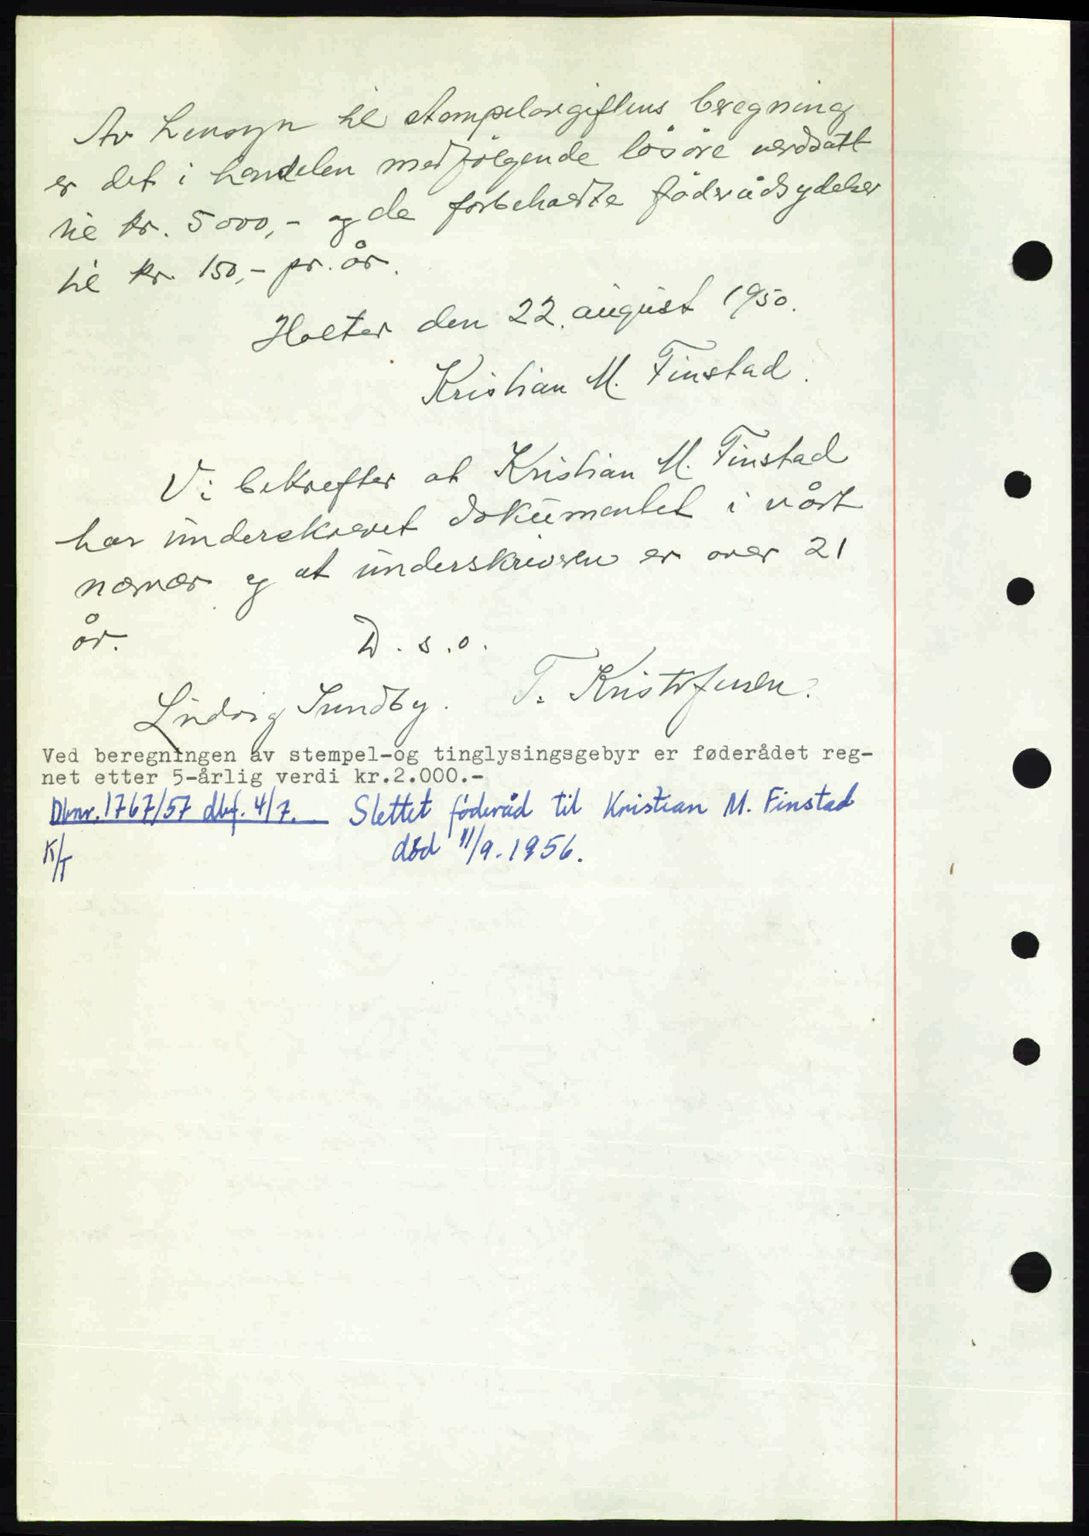 Av hensyn til stempelavgiftens beregning
er det i handelen medfølgende løsøre verdsatt
til kr. 5000,- og de forbeholdte føderådsydelser
til kr. 150,- pr. år.
Holter den 22. august 1950.
Kristian M. Finstad.
Vi bekrefter at Kristian M. Finstad
har underskrevet dokumentet i vårt
nærvær og at underskriveren er over 21
år.
D.s.o.
Ludvig Sundby. T. Kristofersen.
Ved beregningen av stempel-og tinglysingsgebyr er føderådet reg-
net etter 5-årlig verdi kr.2.000.-
Dbnr. 1767/57 dbf. 4/7. Slettet føderåd til Kristian M. Finstad
K/T død 11/9.1956.